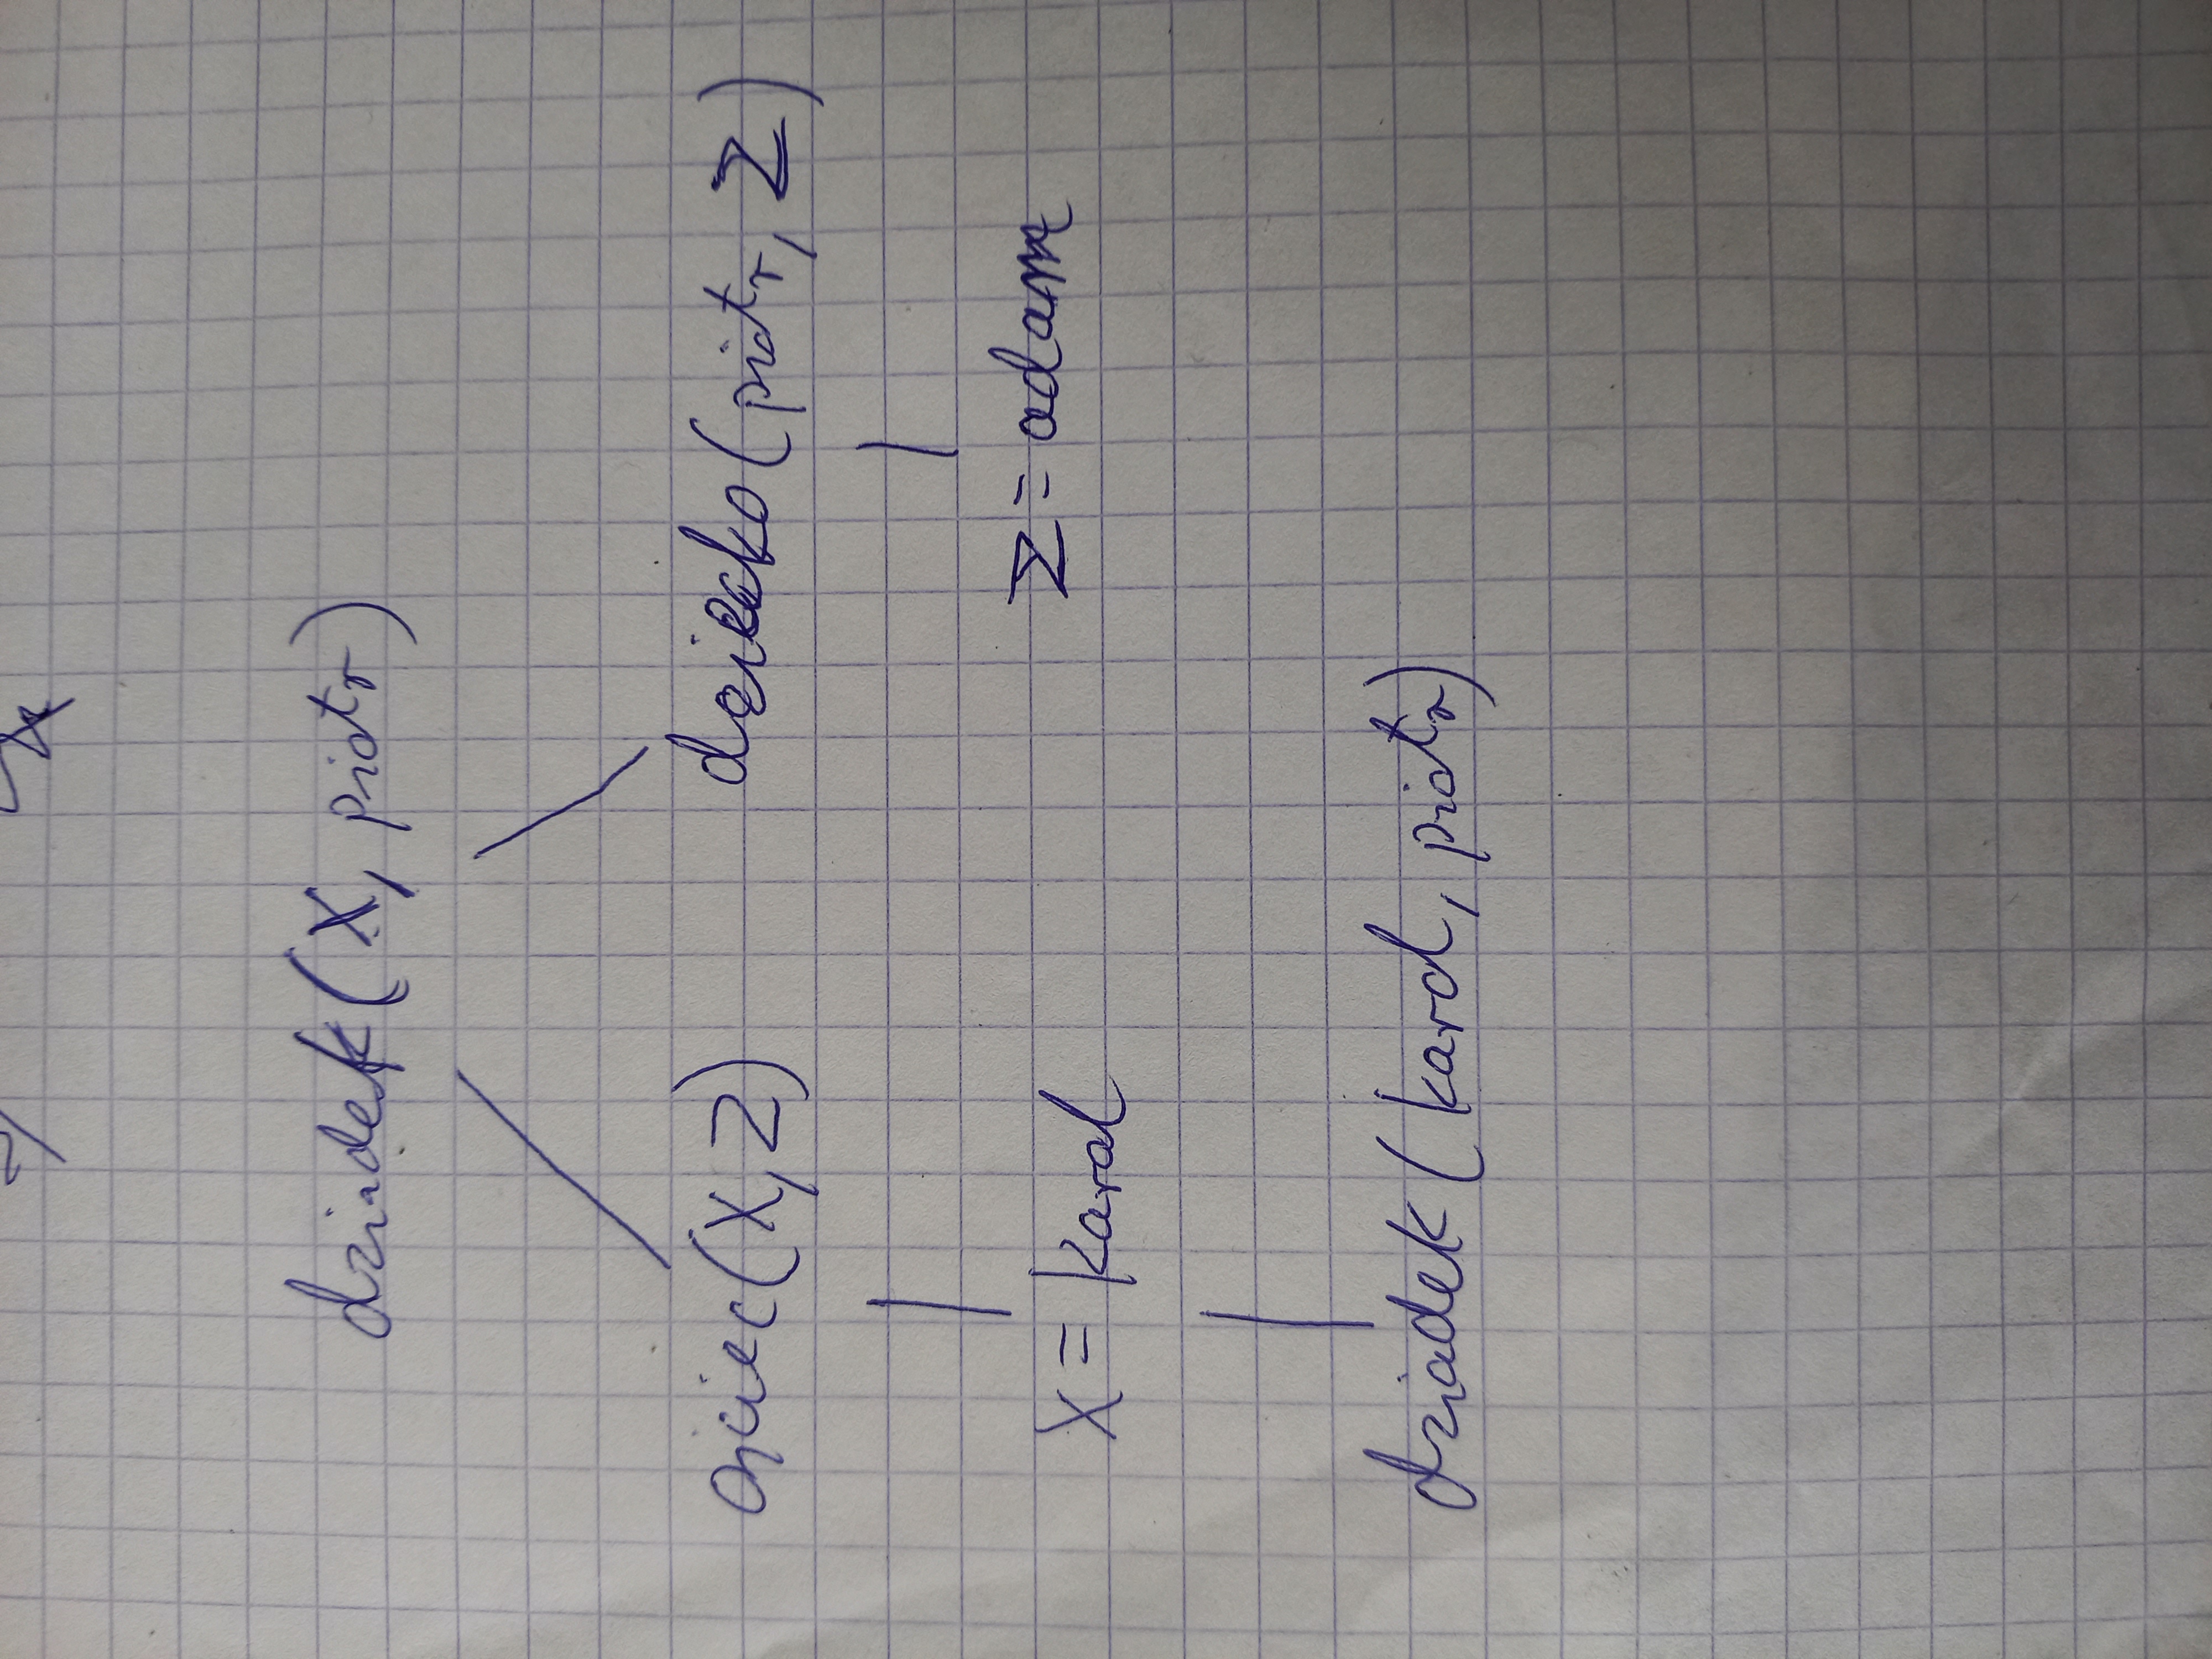 dziadek(X, piotr)
ojciec(X,Z) dziecko(piotr, Z)
Z = adam
X = karol
dziadek(karol, piotr)